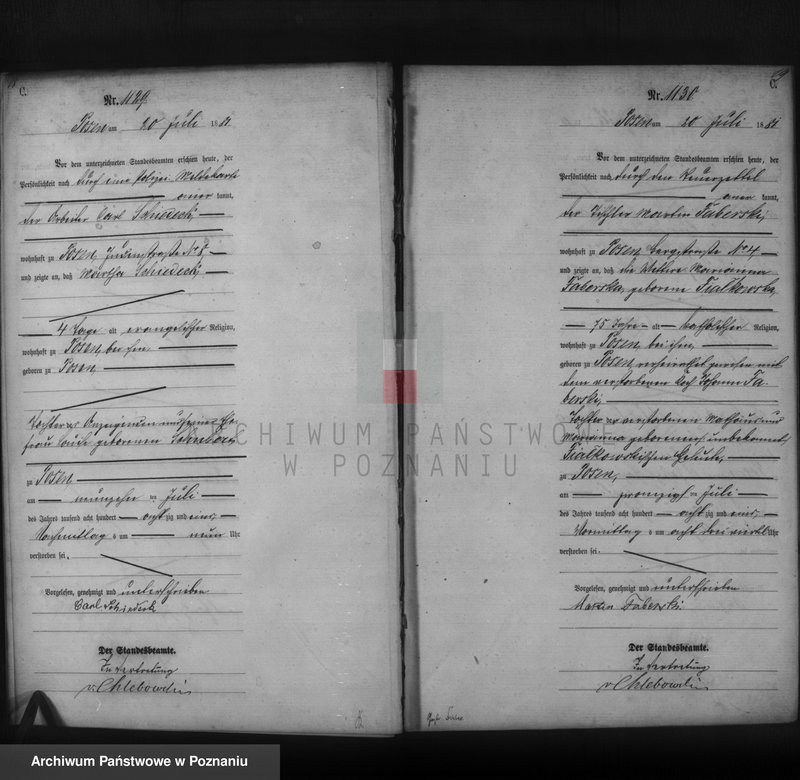 C.
Nr. 1129.
Posen am 20 Juli 1881
Vor dem unterzeichneten Standesbeamten erschien heute, der
Persönlichkeit nach durch eine Polizei Meldekarte
kannt,
der Arbeiter Carl Schiedeck
wohnhaft zu Posen, Judenstraße No
und zeigte an, daß Martha Schiedeck
4 Tage alt evangelischer Religion,
wohnhaft zu Posen bei ihm
geboren zu Posen
Tochter des Anzeigenden und seiner Ehe-
frau geborenen
zu Posen
am neunzehn ten Juli
des Jahres tausend acht hundert acht zig und eins
Nachmittag s um neun Uhr
verstorben sei.
Vorgelesen, genehmigt und unterschrieben
Carl Schiedeck
Der Standesbeamte.
In Vertretung
v. Chlebowski
C.
Nr. 1130
Posen am 20 Juli 1881
Vor dem unterzeichneten Standesbeamten erschien heute, der
Persönlichkeit nach durch den Steuerzettel
kannt,
der Tischler Martin Faberski,
wohnhaft zu Posen Bergstraße No 4
und zeigte an, daß die Wittwe Marianna
Faberska, geborene Fialkowska,
75 Jahre alt katholischer Religion,
wohnhaft zu Posen bei ihm,
geboren zu Posen, verheirathet gewesen mit
dem verstorbenen Koch Johann Fa-
berski,
Tochter der verstorbenen Mathäus und
Marianna geborenen unbekannt,
Fialkowskischen Eheleute,
zu Posen,
am zwanzigst ten Juli
des Jahres tausend acht hundert acht zig und eins
Vormittag s um acht dreiviertel Uhr
verstorben sei.
Vorgelesen, genehmigt und unterschrieben
Martin Faberski
Der Standesbeamte.
In Vertretung
v. Chlebowski
ARCHIWUM PAŃSTWOWE
W POZNANIU
Archiwum Państwowe w Poznaniu